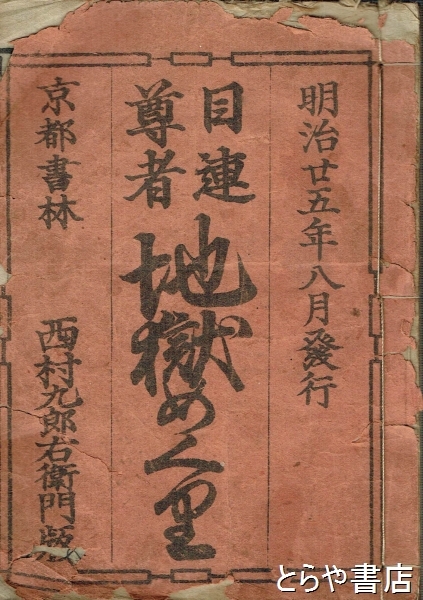 明治廿五年八月發行
目連
尊者
地獄めくり
京都書林
西村九郎右衛門版
とらや書店